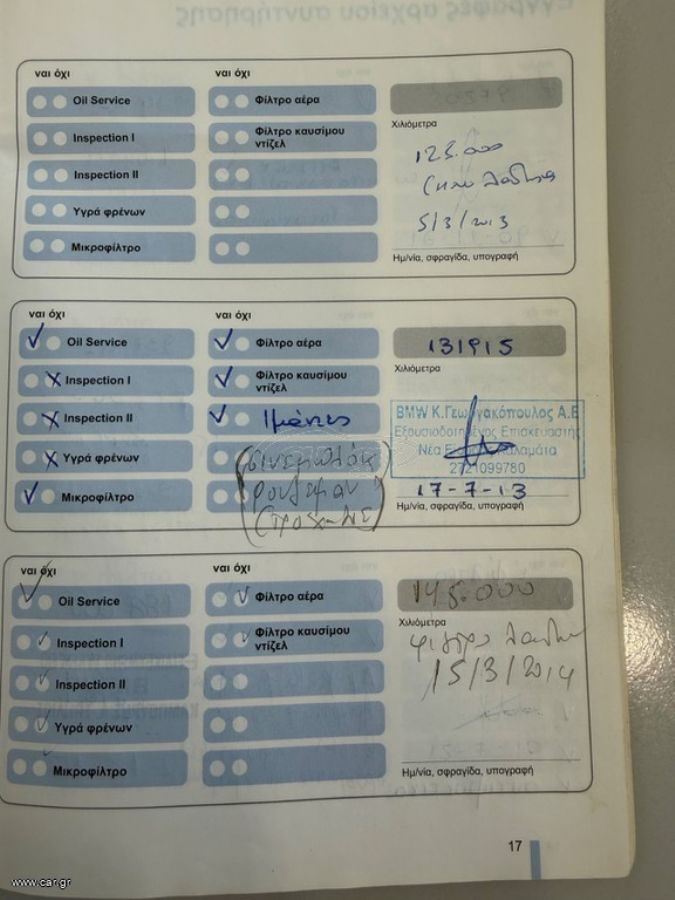 ναι όχι
ναι όχι
Oil Service
Φίλτρο αέρα
Inspection I
Φίλτρο καυσίμου
ντίζελ
Inspection II
Υγρά φρένων
Μικροφίλτρο
Χιλιόμετρα
125.000
5/3/2013
Ημ/νία, σφραγίδα, υπογραφή
ναι όχι
ναι όχι
Oil Service
Φίλτρο αέρα
Inspection I
Φίλτρο καυσίμου
ντίζελ
Inspection II
Ιμάντες
Υγρά φρένων
Σινεμπλόκ
Μικροφίλτρο
ρουλεμαν
131915
Χιλιόμετρα
BMW Κ.Γεωργακόπουλος Α.Ε
Εξουσιοδοτημένος Επισκευαστής
Νέα Είσοδος Καλαμάτα
2721099780
17-7-13
Ημ/νία, σφραγίδα, υπογραφή
ναι όχι
ναι όχι
Oil Service
Φίλτρο αέρα
Inspection I
Φίλτρο καυσίμου
ντίζελ
Inspection II
Υγρά φρένων
Μικροφίλτρο
145.000
Χιλιόμετρα
15/3/2014
Ημ/νία, σφραγίδα, υπογραφή
17
www.car.gr